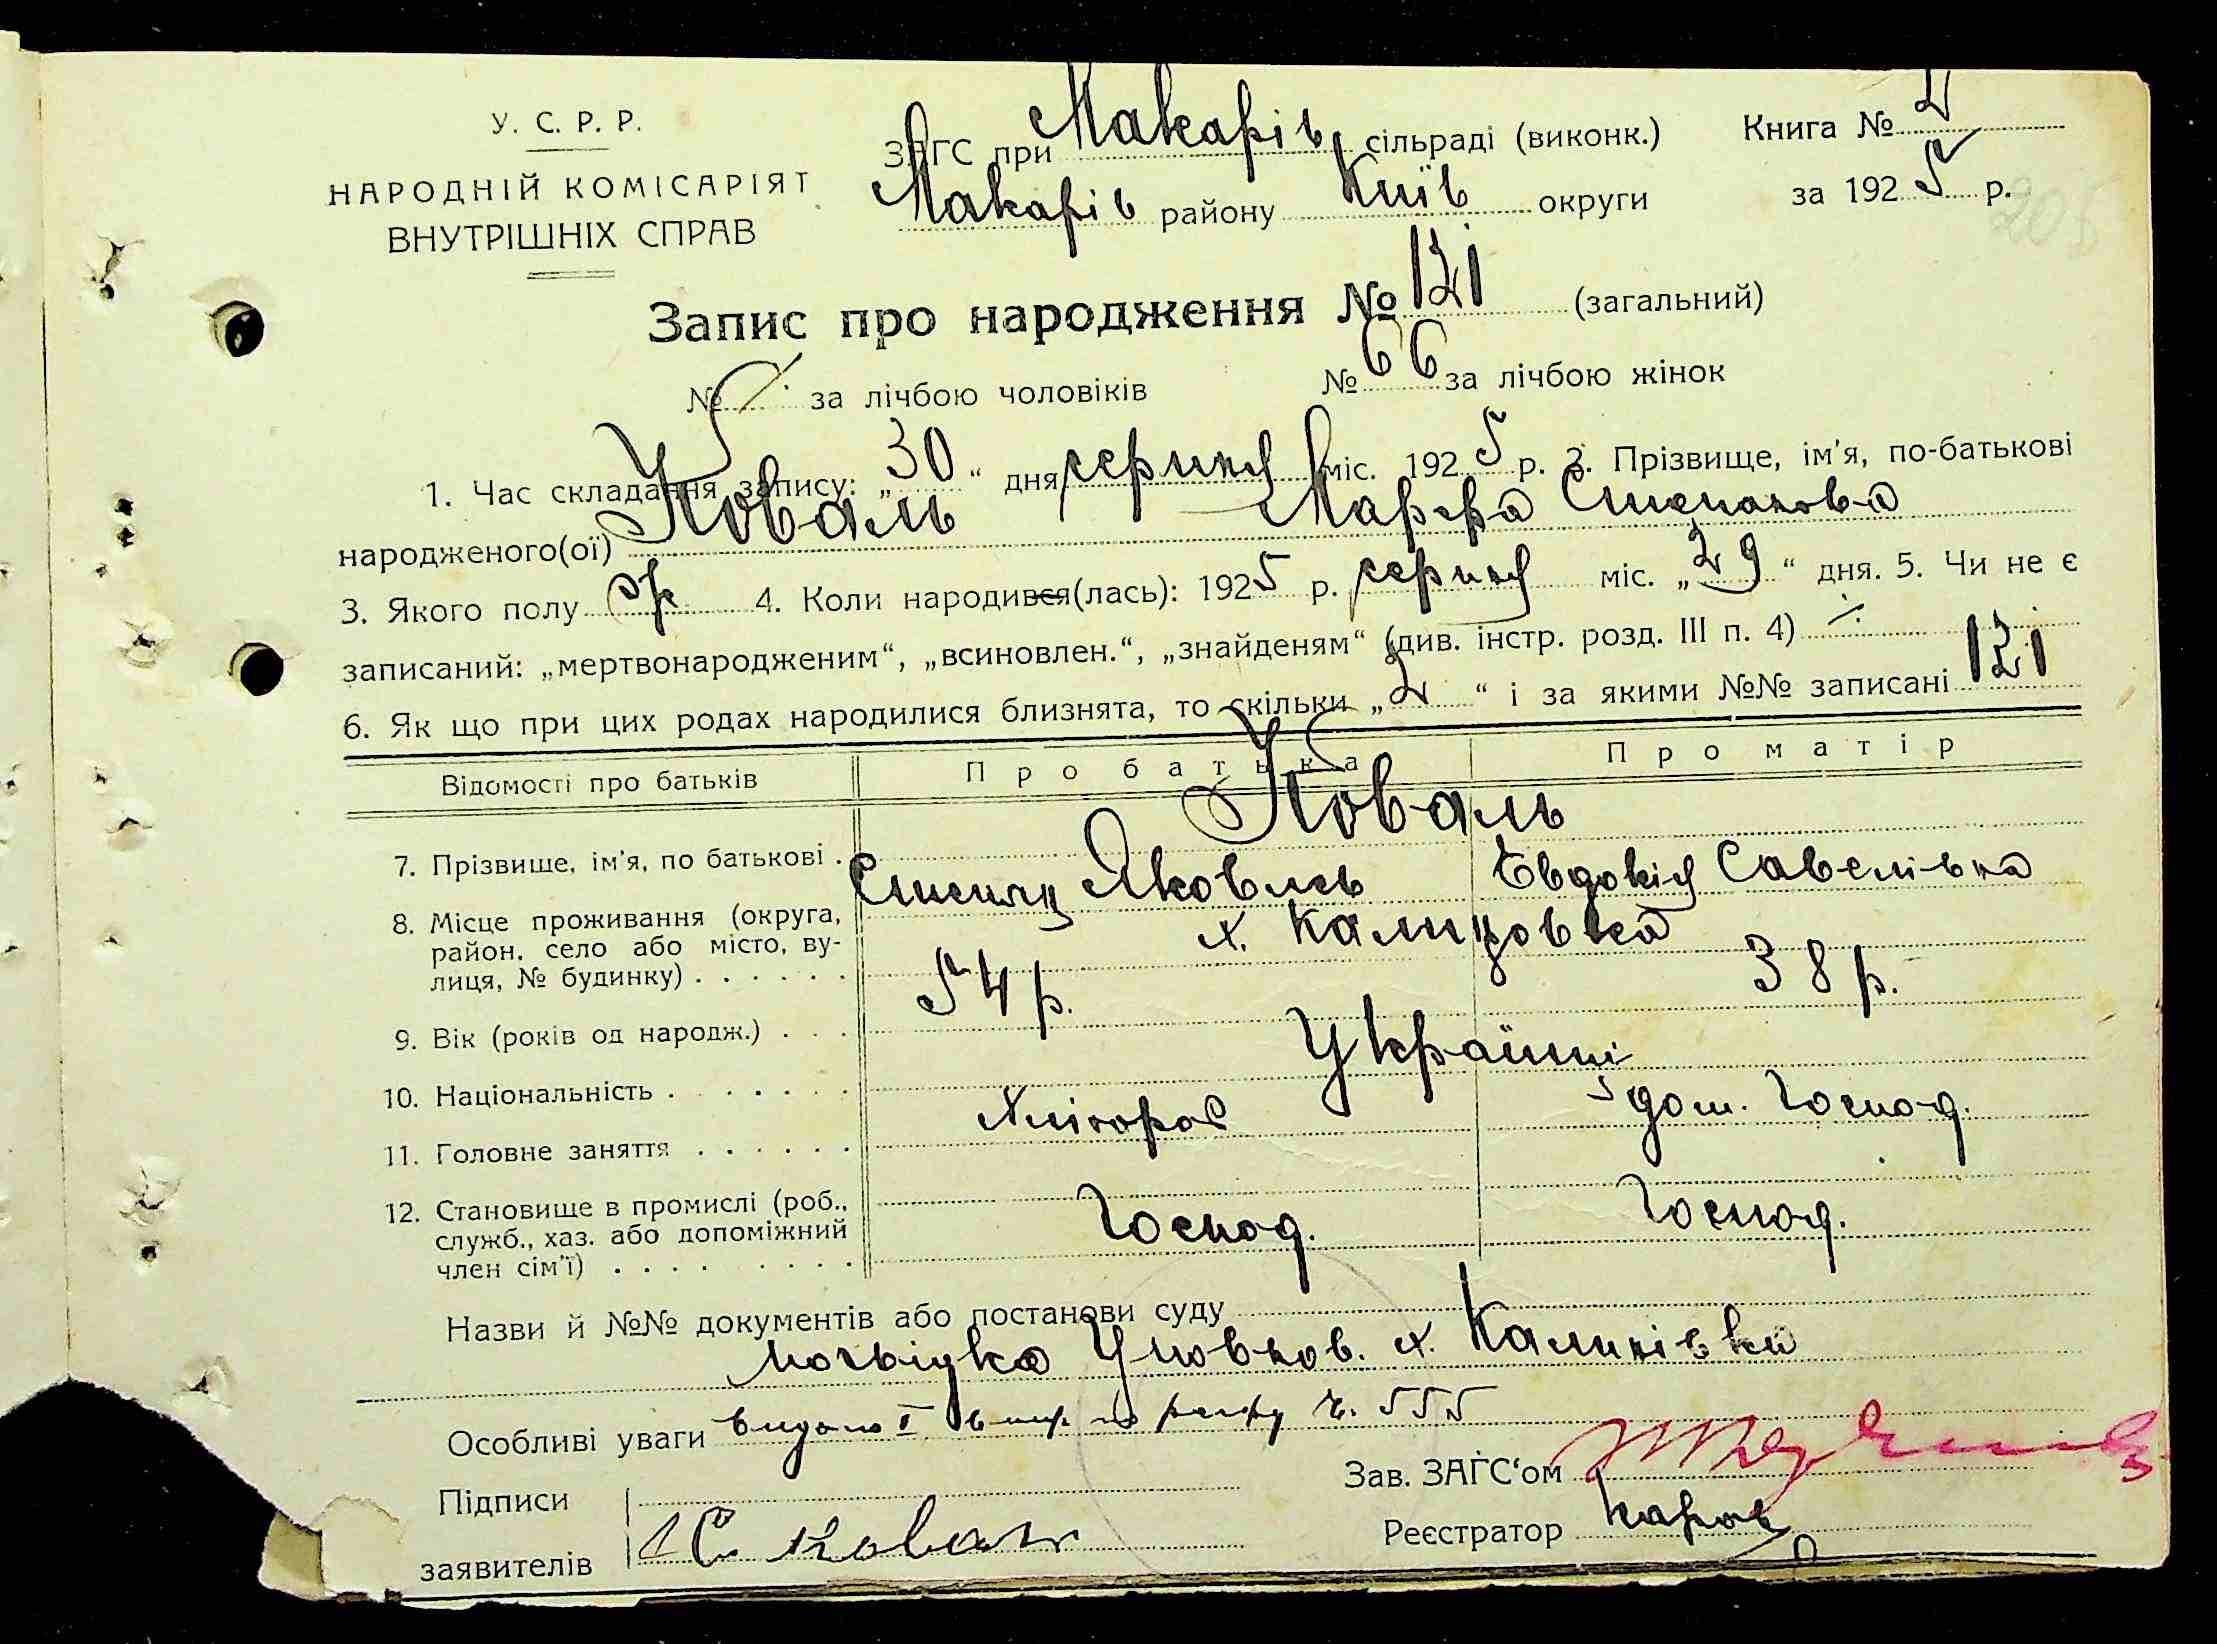 У. С. Р. Р.
НАРОДНІЙ КОМІСАРІЯТ
ВНУТРІШНІХ СПРАВ
ЗАГС при Макарів сільраді (виконк.) Книга № 2
Макарів району Київ округи за 1925 р.
208
Запис про народження № 121 (загальний)
№ за лічбою чоловіків № 66 за лічбою жінок
1. Час складання запису: „30“ дня серпня міс. 1925 р. 2. Прізвище, ім'я, по-батькові
народженого(ої) Коваль Марфа Степанова
3. Якого полу ж 4. Коли народився(лась): 1925 р. серпня міс. „29“ дня. 5. Чи не є
записаний: „мертвонародженим“, „всиновлен.“, „знайденям“ (див. інстр. розд. III п. 4)
6. Як що при цих родах народилися близнята, то скільки „2“ і за якими №№ записані 121
Відомості про батьків Про батька Про матір
7. Прізвище, ім'я, по батькові . Коваль
Степан Яковлев Евдокія Савелівна
8. Місце проживання (округа, район, село або місто, вулиця, № будинку) . . . . . . х. Калиновка
9. Вік (років од народж.) . . . 54 р. 38 р.
10. Національність . . . . . . . Українці
11. Головне заняття . . . . . . Хлібороб дом. Господ.
12. Становище в промислі (роб., служб., хаз. або допоміжний член сім'ї) . . . . . . . . . Господ. Господ.
Назви й №№ документів або постанови суду
посвідка Уповнов. х. Калинівки
Особливі уваги видано І по ч. 555
Зав. ЗАГС'ом
Підписи
заявителів С Коваль
Реєстратор